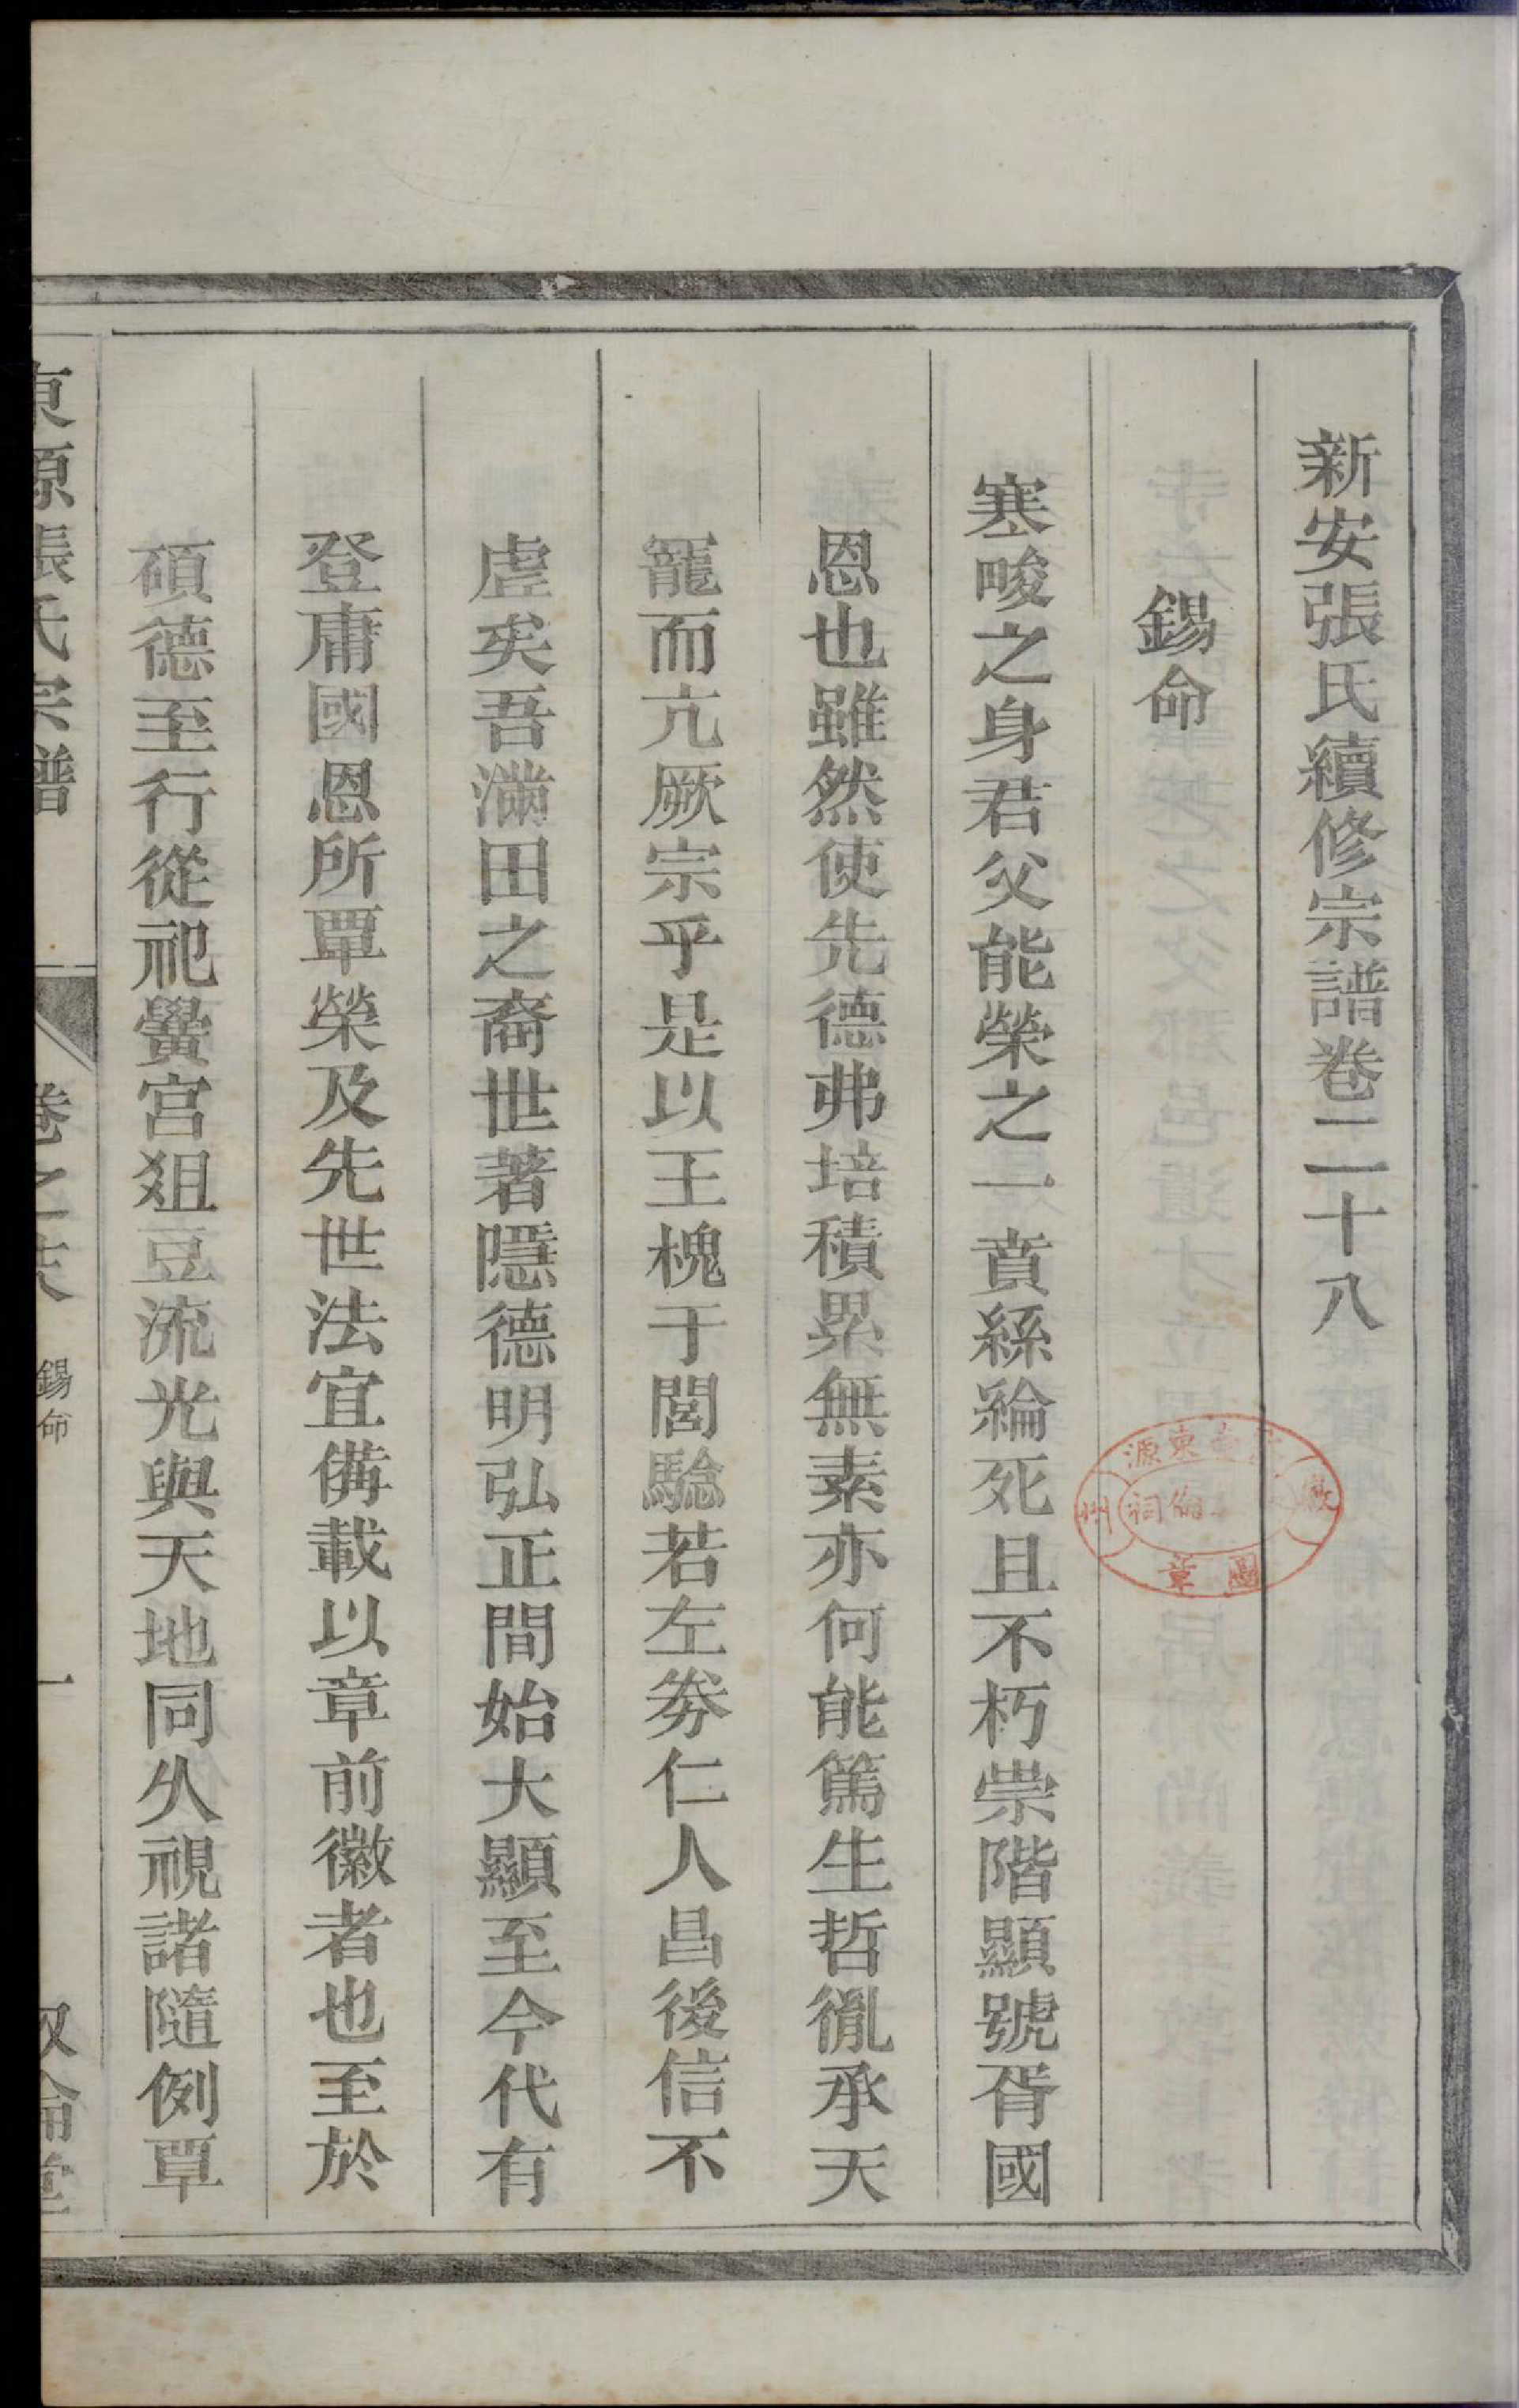 新安張氏續修宗譜卷二十八
錫命
寒畯之身君父能榮之一賁絲綸死且不朽崇階顯號胥國
恩也雖然使先德弗培積累無素亦何能篤生哲胤承天
寵而亢厥宗乎是以王槐于閭騐若左劵仁人昌後信不
虛矣吾滿田之裔世著隱德明弘正間始大顯至今代有
登庸國恩所覃榮及先世法宜備載以章前徽者也至於
碩德至行從祀黌宮俎豆流光與天地同久視諸隨例覃
東源張氏宗譜
卷之
錫命
一
敘倫堂
東源
徽
州
祠
圖章